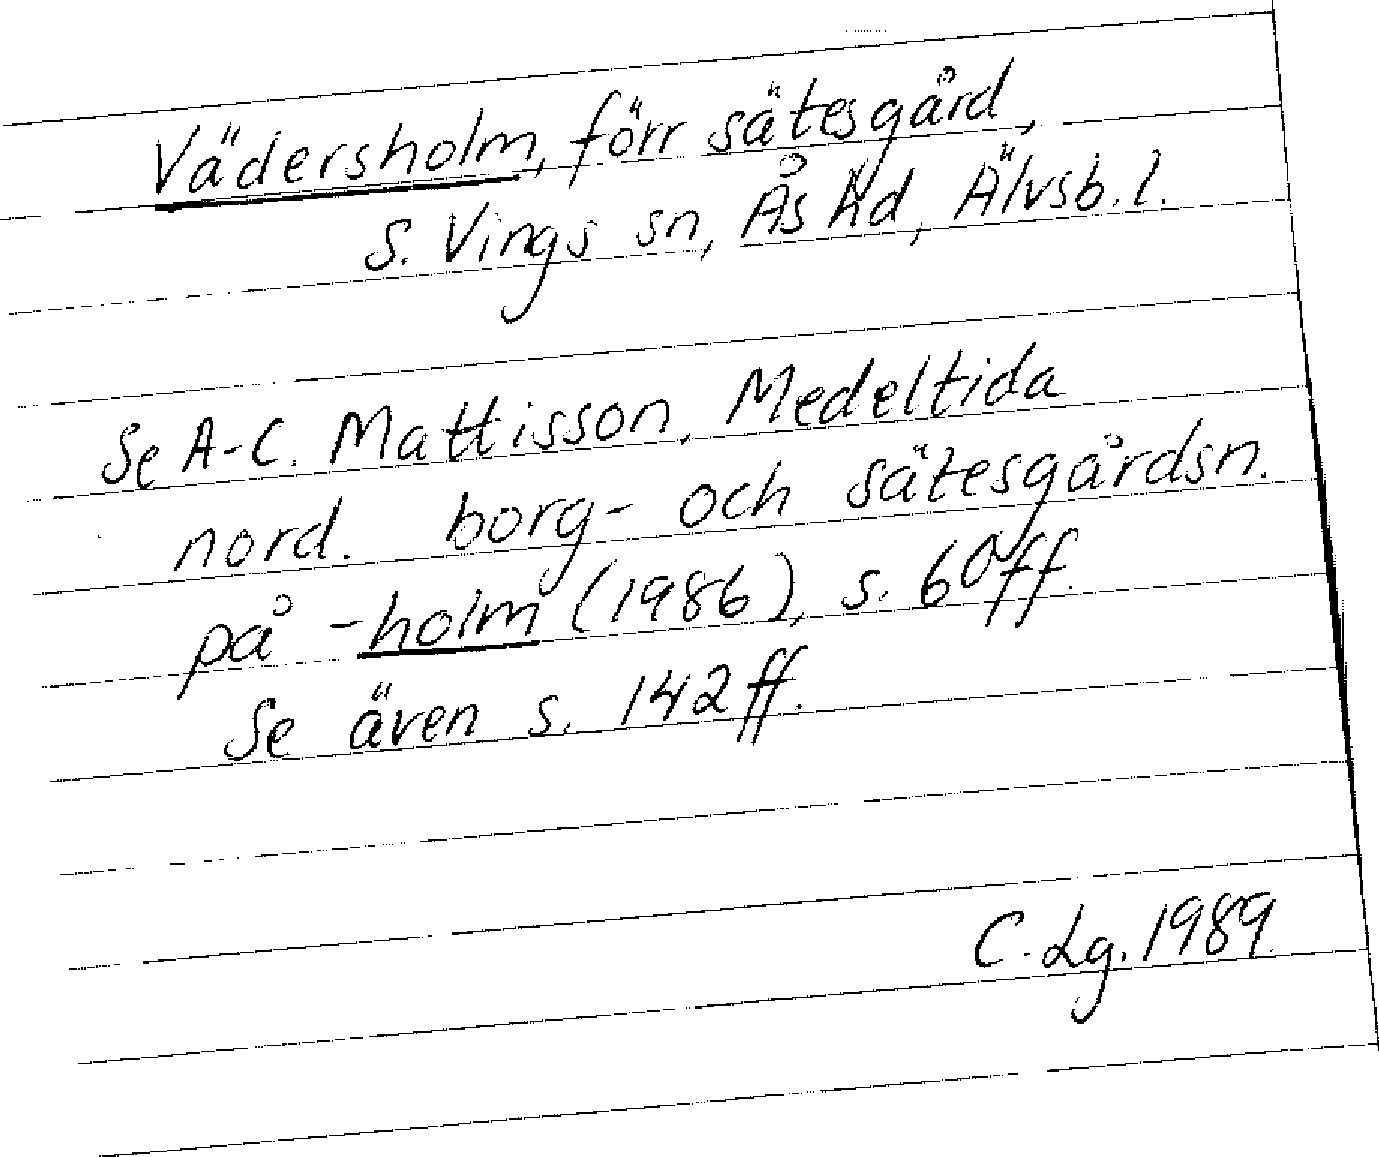 Vädersholm, förr sätesgård,
S. Vings sn, Ås hd, Älvsb. l.
Se A-C. Mattisson, Medeltida
nord. borg- och sätesgårdsn.
på -holm (1986), s. 60 ff.
Se även s. 142 ff.
C. Lg. 1989